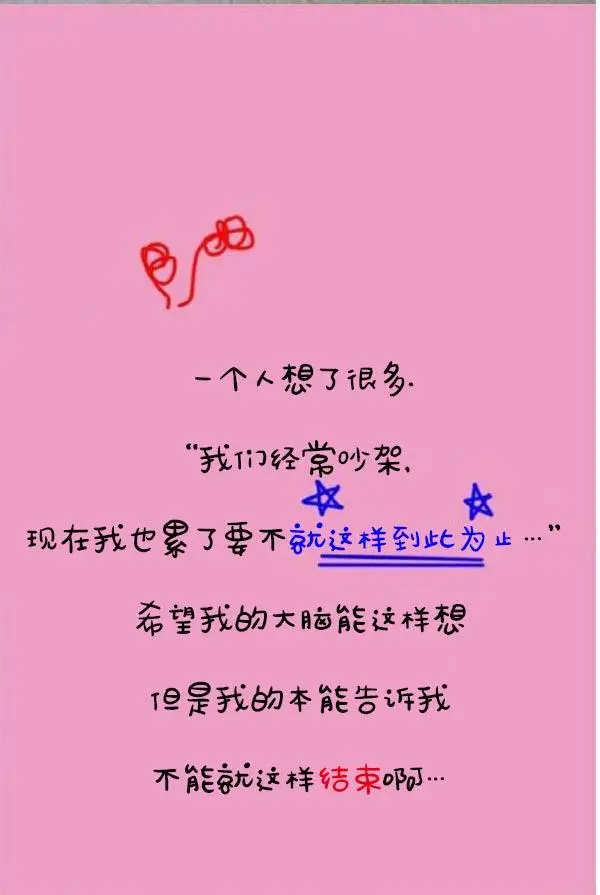 一个人想了很多.
“我们经常吵架,
现在我也累了要不就这样到此为止…”
希望我的大脑能这样想
但是我的本能告诉我
不能就这样结束啊…